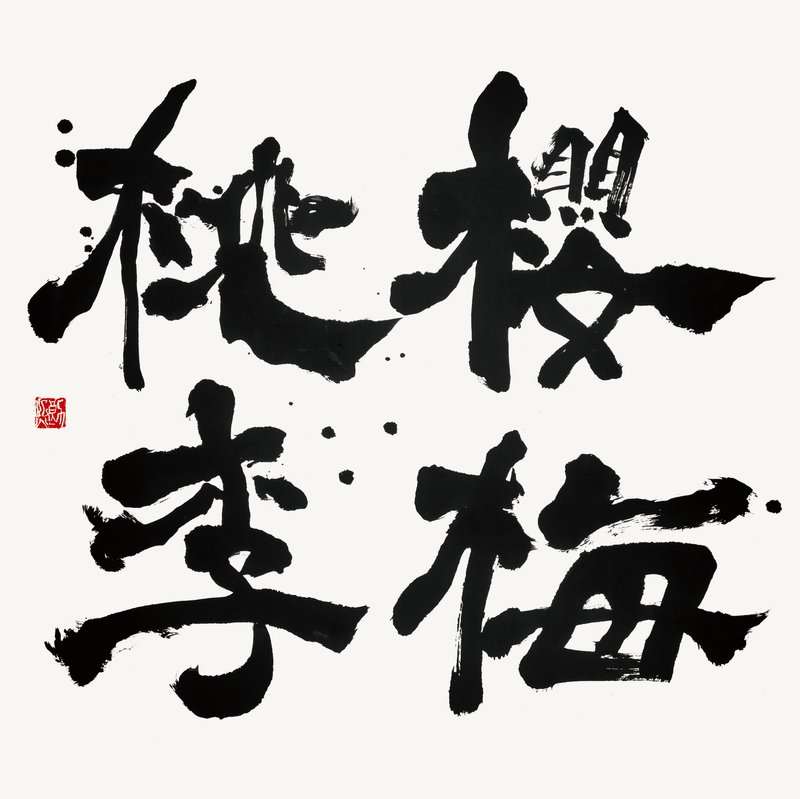 櫻梅
桃李